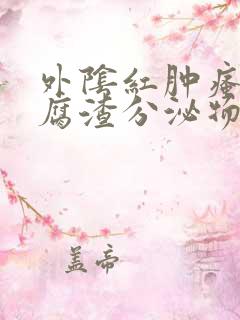 外陰紅肿瘙
腐渣分泌物
盖帝